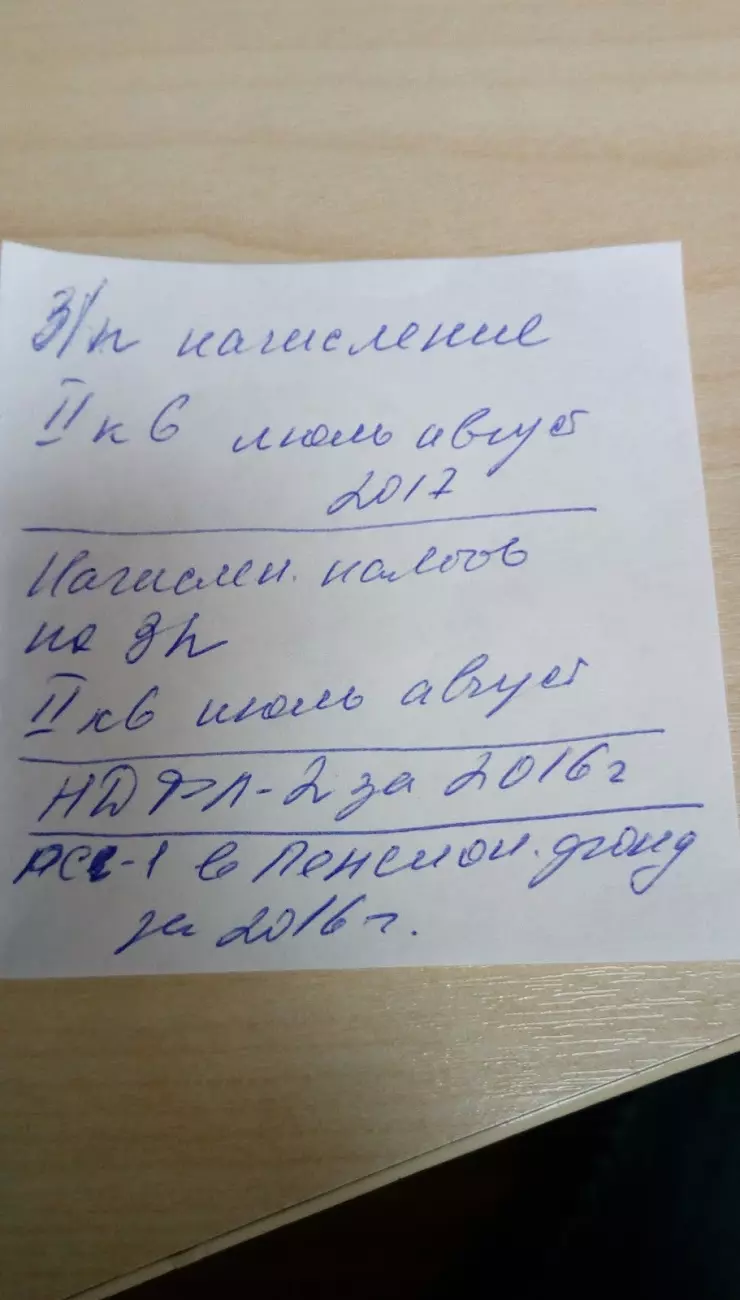 З/п начисление
II кв июль август
2017
Начислен. налогов
на зп
II кв июль август
НДФЛ-2 за 2016 г
РСВ-1 в Пенсион. фонд
за 2016 г.